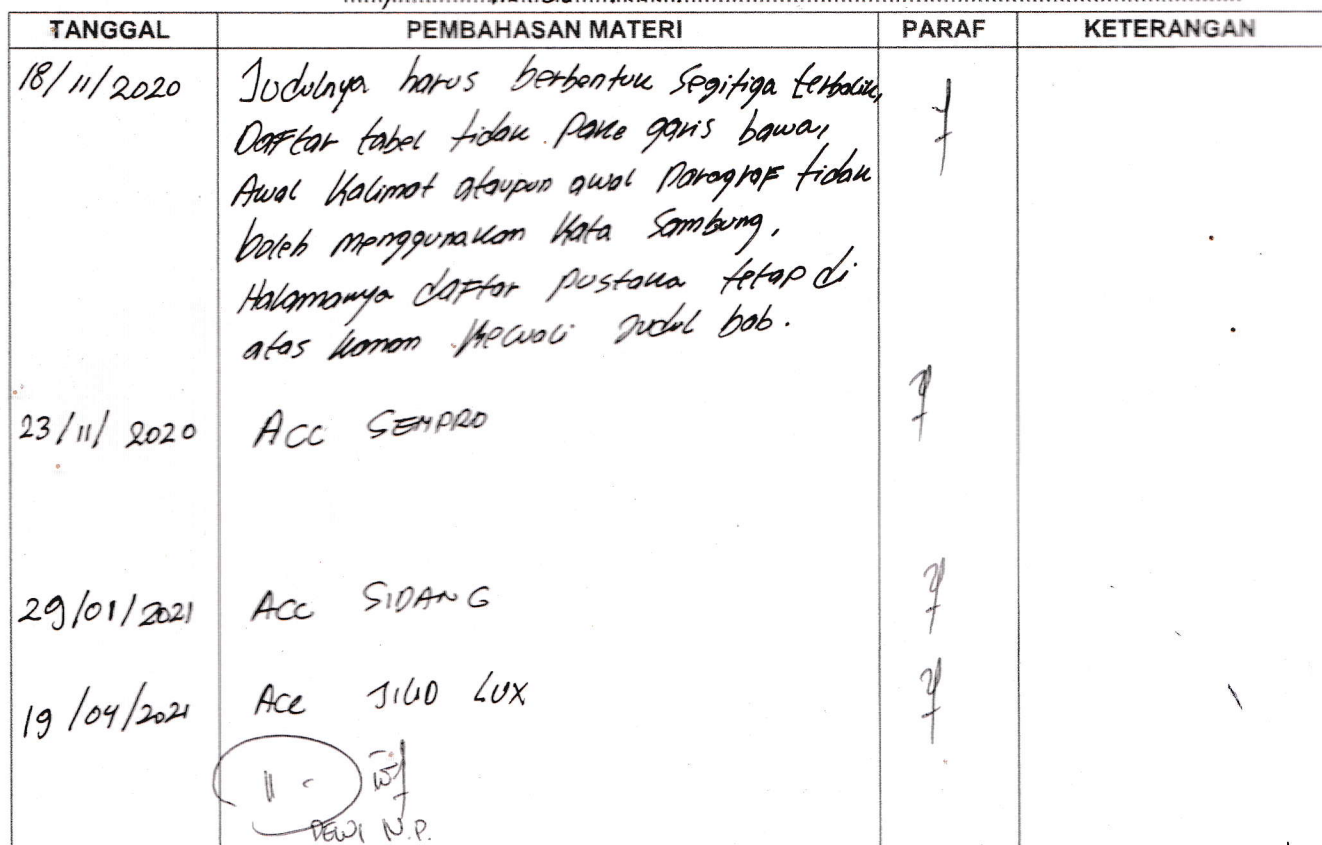 TANGGAL PEMBAHASAN MATERI PARAF KETERANGAN
18/11/2020 Judulnya harus berbentuk Segitiga terbalik,
Daftar tabel tidak Pake garis bawa,
Awal Kalimat ataupun awal Paragraf tidak
boleh menggunakan Kata Sambung,
Halamanya daftar pustaka tetap di
atas kanan kecuali Judul bab.
23/11/2020 Acc SEMPRO
29/01/2021 Acc SIDANG
19/04/2021 Acc JILID LUX
DEWI N.P.